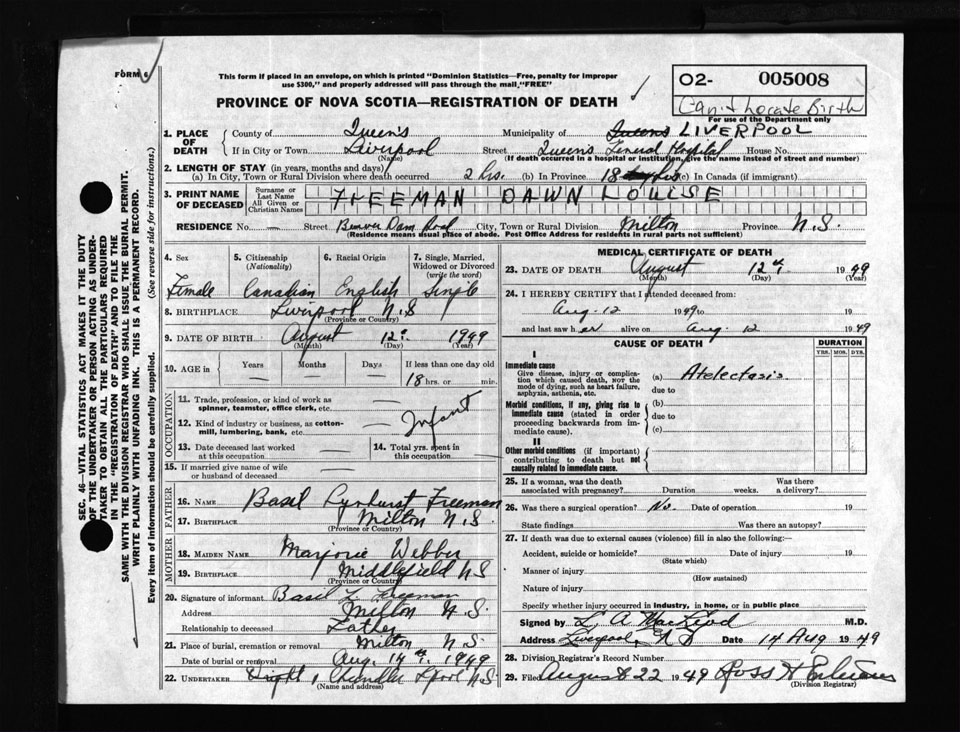 FORM 6
This form if placed in an envelope, on which is printed "Dominion Statistics—Free, penalty for improper
use $300," and properly addressed will pass through the mail, "FREE"
PROVINCE OF NOVA SCOTIA—REGISTRATION OF DEATH
O2- 005008
Can't Locate Birth
For use of the Department only
1. PLACE OF DEATH
County of Queen's Municipality of Queens LIVERPOOL
If in City or Town Liverpool Street Queen's General Hospital House No.
(Name) (If death occurred in a hospital or institution, give the name instead of street and number)
2. LENGTH OF STAY (in years, months and days)
(a) In City, Town or Rural Division where death occurred 2 hrs. (b) In Province 18 hrs (c) In Canada (if immigrant)
3. PRINT NAME OF DECEASED
Surname or Last Name
All Given or Christian Names
FREEMAN DAWN LOUISE
RESIDENCE No. — Street Beaver Dam Road City, Town or Rural Division Milton Province N.S.
(Residence means usual place of abode. Post Office Address for residents in rural parts not sufficient)
4. Sex
Female
5. Citizenship (Nationality)
Canadian
6. Racial Origin
English
7. Single, Married, Widowed or Divorced (write the word)
Single
8. BIRTHPLACE Liverpool N.S
(Province or Country)
9. DATE OF BIRTH August 12th 1949
(Month) (Day) (Year)
10. AGE in Years Months Days If less than one day old
— — — 18 hrs. or min.
OCCUPATION
11. Trade, profession, or kind of work as
spinner, teamster, office clerk, etc.
12. Kind of industry or business, as cotton-
mill, lumbering, bank, etc. Infant
13. Date deceased last worked
at this occupation —
14. Total yrs. spent in
this occupation
15. If married give name of wife
or husband of deceased
FATHER
16. NAME Basil Freeman
17. BIRTHPLACE Milton N.S.
(Province or Country)
MOTHER
18. MAIDEN NAME Marjorie Webber
19. BIRTHPLACE Middlefield N.S
(Province or Country)
20. Signature of informant Basil L Freeman
Address Milton N.S.
Relationship to deceased Father
21. Place of burial, cremation or removal Milton N.S.
Date of burial or removal Aug. 14th 1949
22. UNDERTAKER Chandler N.S
(Name and address)
MEDICAL CERTIFICATE OF DEATH
23. DATE OF DEATH August 12th 1949
(Month) (Day)
24. I HEREBY CERTIFY that I attended deceased from:
Aug-12 1949 to 19
and last saw her alive on Aug. 12 1949
CAUSE OF DEATH DURATION
YRS. MOS. DYS.
I
Immediate cause
Give disease, injury or complica-
tion which caused death, NOT the
mode of dying, such as heart failure,
asphyxia, asthenia, etc.
(a) Atelectasis.
due to
Morbid conditions, if any, giving rise to
immediate cause (stated in order
proceeding backwards from im-
mediate cause).
(b)
due to
(c)
II
Other morbid conditions (if important)
contributing to death but not
causally related to immediate cause.
25. If a woman, was the death
associated with pregnancy? Duration weeks. Was there
a delivery?
26. Was there a surgical operation? No. Date of operation 19
State findings Was there an autopsy?
27. If death was due to external causes (violence) fill in also the following:—
Accident, suicide or homicide? Date of injury 19
(State which)
Manner of injury
(How sustained)
Nature of injury
Specify whether injury occurred in industry, in home, or in public place
Signed by L. A MacLeod M.D.
Address Liverpool, N S Date 14 Aug 1949
28. Division Registrar's Record Number
29. Filed August 22 1949 Ross H
(Division Registrar)
SEC. 46—VITAL STATISTICS ACT MAKES IT THE DUTY
OF THE UNDERTAKER OR PERSON ACTING AS UNDER-
TAKER TO OBTAIN ALL THE PARTICULARS REQUIRED
IN THE "REGISTRATION OF DEATH" AND TO FILE THE
SAME WITH THE DIVISION REGISTRAR WHO SHALL ISSUE THE BURIAL PERMIT.
WRITE PLAINLY WITH UNFADING INK. THIS IS A PERMANENT RECORD.
Every item of information should be carefully supplied. (See reverse side for instructions.)